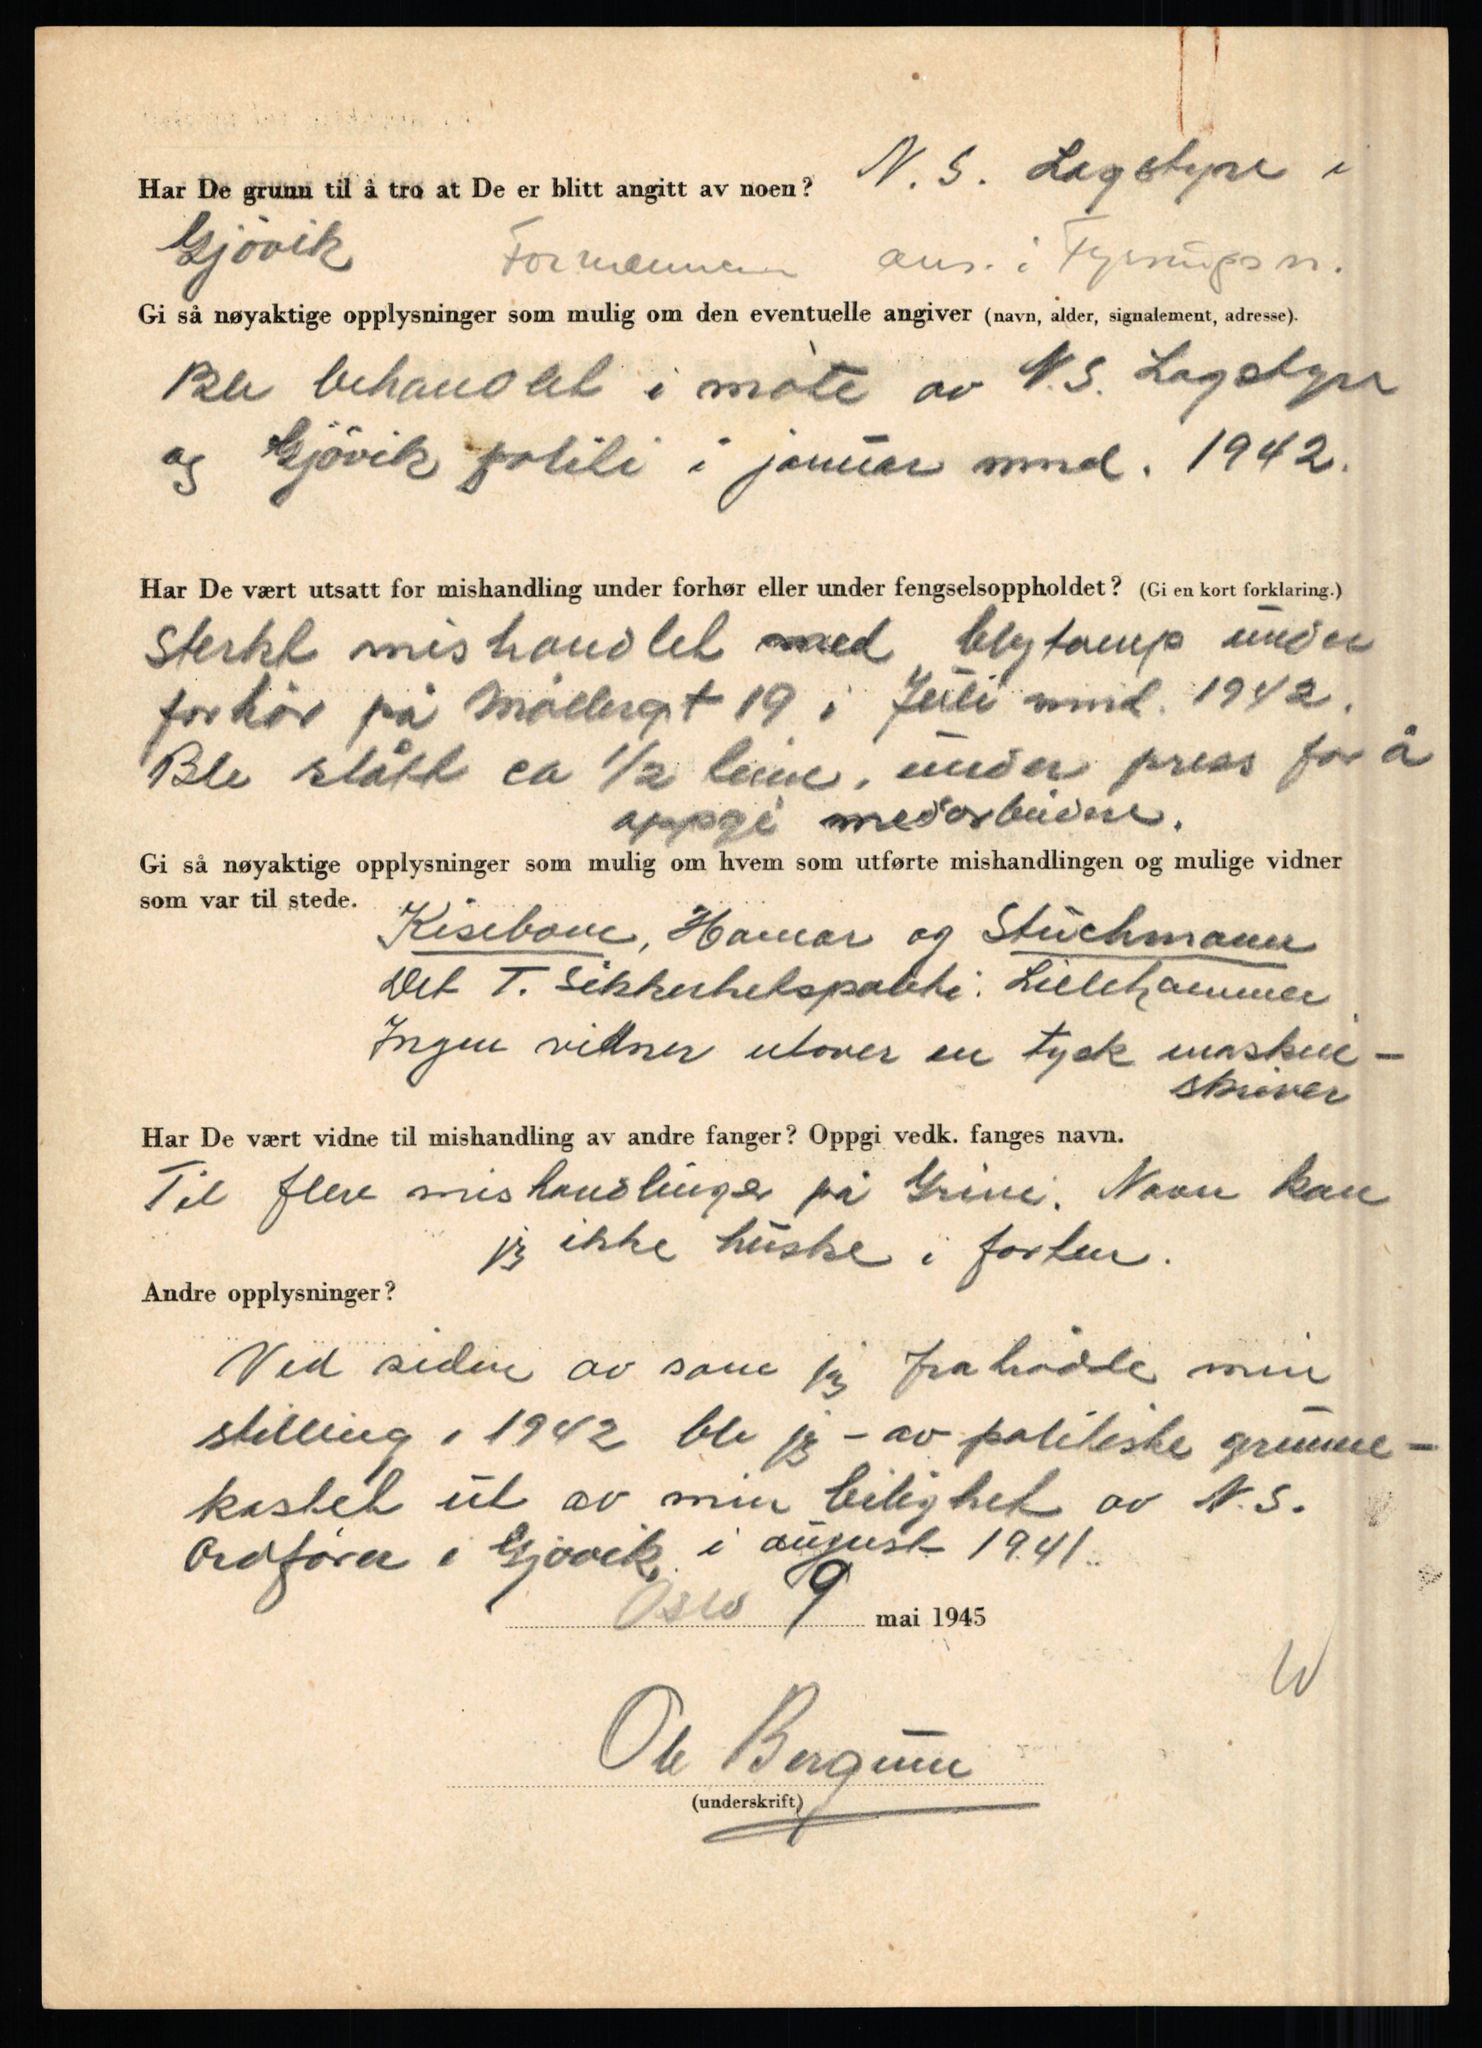 Har De grunn til å tro at De er blitt angitt av noen? N. S. Lagstyre i
Gjövik Formannen ans. i Fyrningsn.
Gi så nøyaktige opplysninger som mulig om den eventuelle angiver (navn, alder, signalement, adresse).
Ble behandlet i möte av N.S. Lagstyre
og Gjövik politi i januar mnd. 1942.
Har De vært utsatt for mishandling under forhør eller under fengselsoppholdet? (Gi en kort forklaring.)
Sterkt mishandlet med blytamp under
forhör på Möllergt 19 i Juli mnd. 1942.
Ble slått ca 1/2 time, under press for å
oppgi medarbeidere.
Gi så nøyaktige opplysninger som mulig om hvem som utførte mishandlingen og mulige vidner
som var til stede.
Kisebom, Hamar og Stuchmann
Det T. Sikkerhetspoliti: Lillehammer
Ingen vidner utover en tysk maskin-
skriver
Har De vært vidne til mishandling av andre fanger? Oppgi vedk. fanges navn.
Til flere mishandlinger på Grini. Navn kan
jeg ikke huske i farten.
Andre opplysninger?
Ved siden av som jeg frahådde min
stilling i 1942 ble jeg - av politiske grunne -
kastet ut av min leilighet av N.S.
Ordförer i Gjövik, i august 1941.
Oslo 9 mai 1945
W
Ole Bergum
(underskrift)